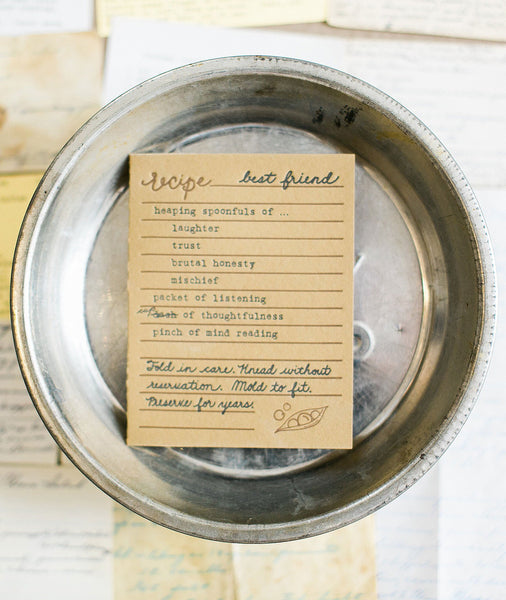 recipe best friend
heaping spoonfuls of ...
laughter
trust
brutal honesty
mischief
packet of listening
cup dash of thoughtfulness
pinch of mind reading
Fold in care. Knead without
reservation. Mold to fit.
Preserve for years.